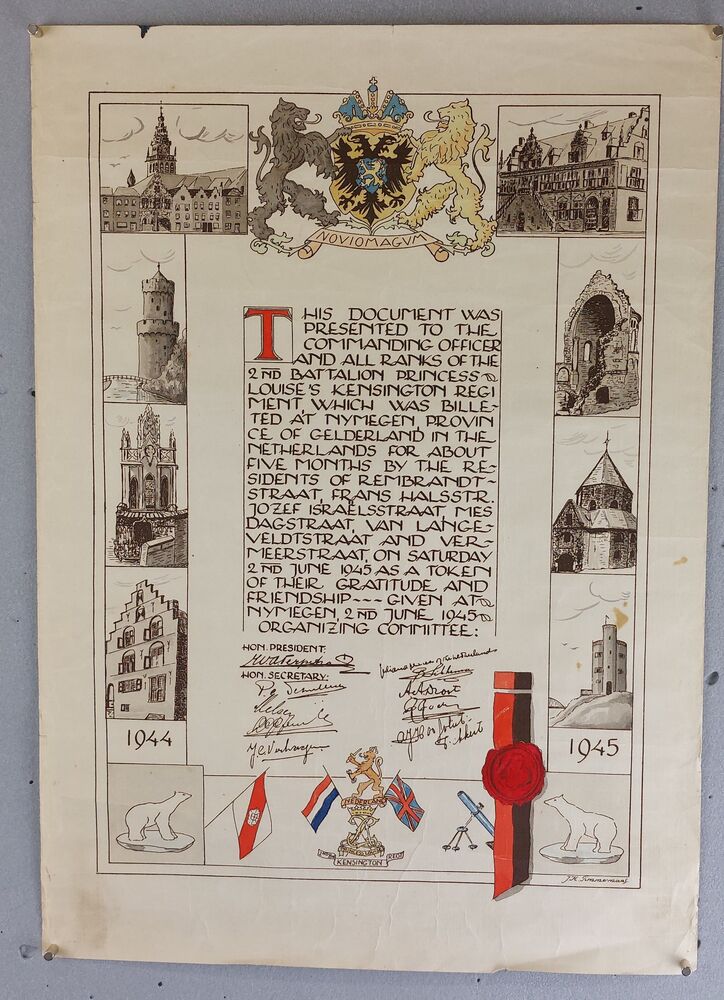 NOVIOMAGVM
THIS DOCUMENT WAS
PRESENTED TO THE
COMMANDING OFFICER
AND ALL RANKS OF THE
2ND BATTALION PRINCESS
LOUISE'S KENSINGTON REGI
MENT, WHICH WAS BILLE-
TED AT NYMEGEN, PROVIN
CE OF GELDERLAND IN THE
NETHERLANDS FOR ABOUT
FIVE MONTHS BY THE RE-
SIDENTS OF REMBRANDT-
STRAAT, FRANS HALSSTR.
JOZEF ISRAËLSSTRAAT, MES
DAGSTRAAT, VAN LANGE-
VELDTSTRAAT AND VER-
MEERSTRAAT, ON SATURDAY
2ND JUNE 1945 AS A TOKEN
OF THEIR GRATITUDE AND
FRIENDSHIP~~~ GIVEN AT
NYMEGEN, 2ND JUNE 1945
ORGANIZING COMMITTEE:
HON. PRESIDENT:
HON. SECRETARY:
1944
1945
NEDERLAND
KENSINGTON
REGT